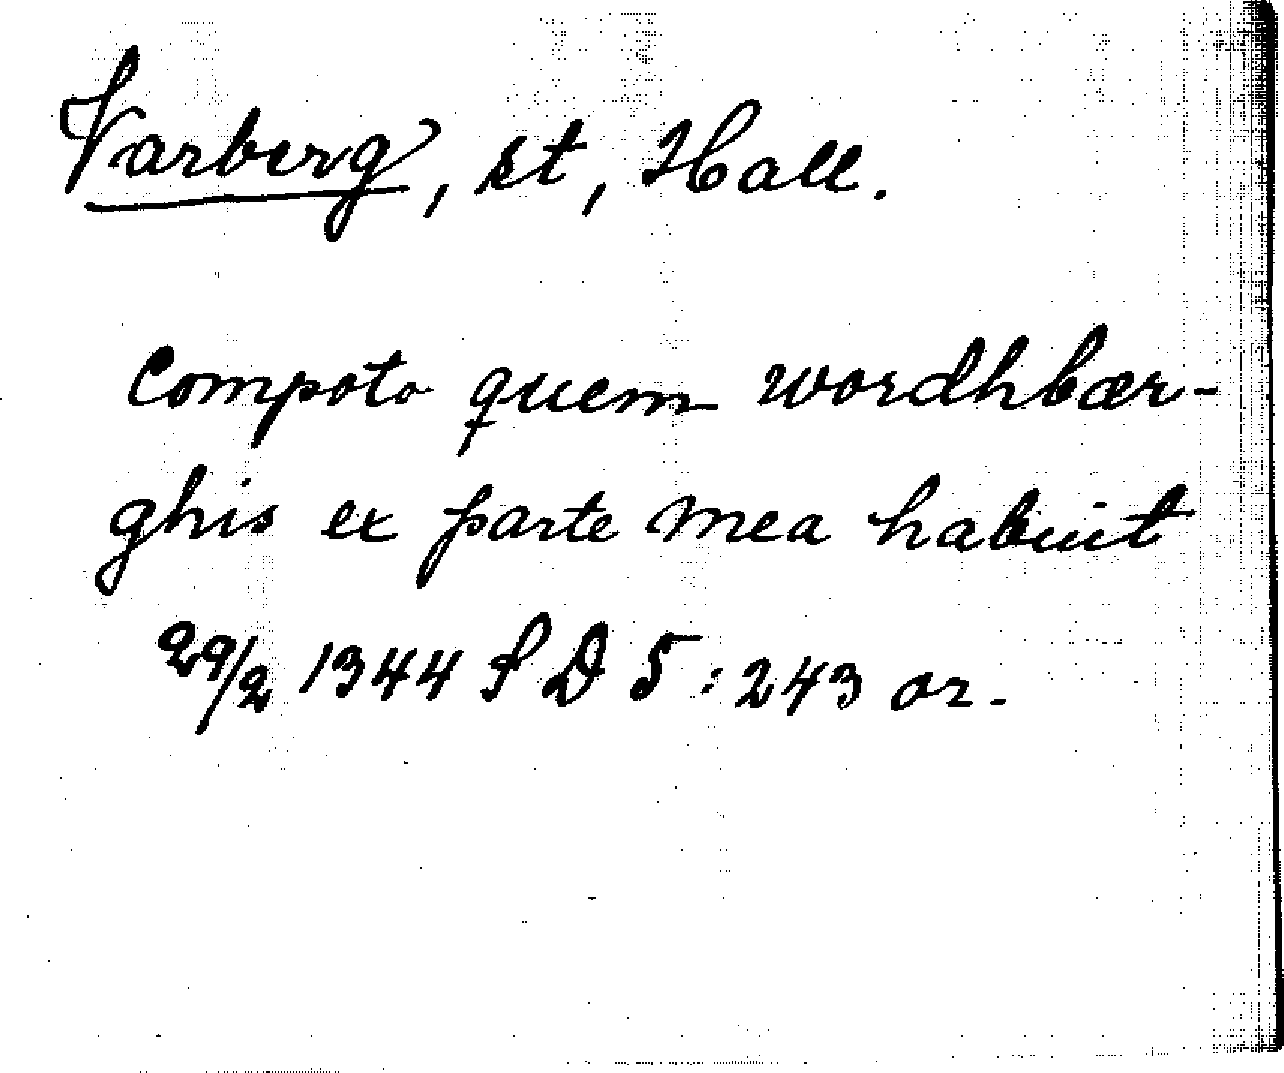 Varberg, st, Hall.
Compoto quem wordhbær-
ghis ex parte mea habuit
29/2 1344 SD 5:243 or.